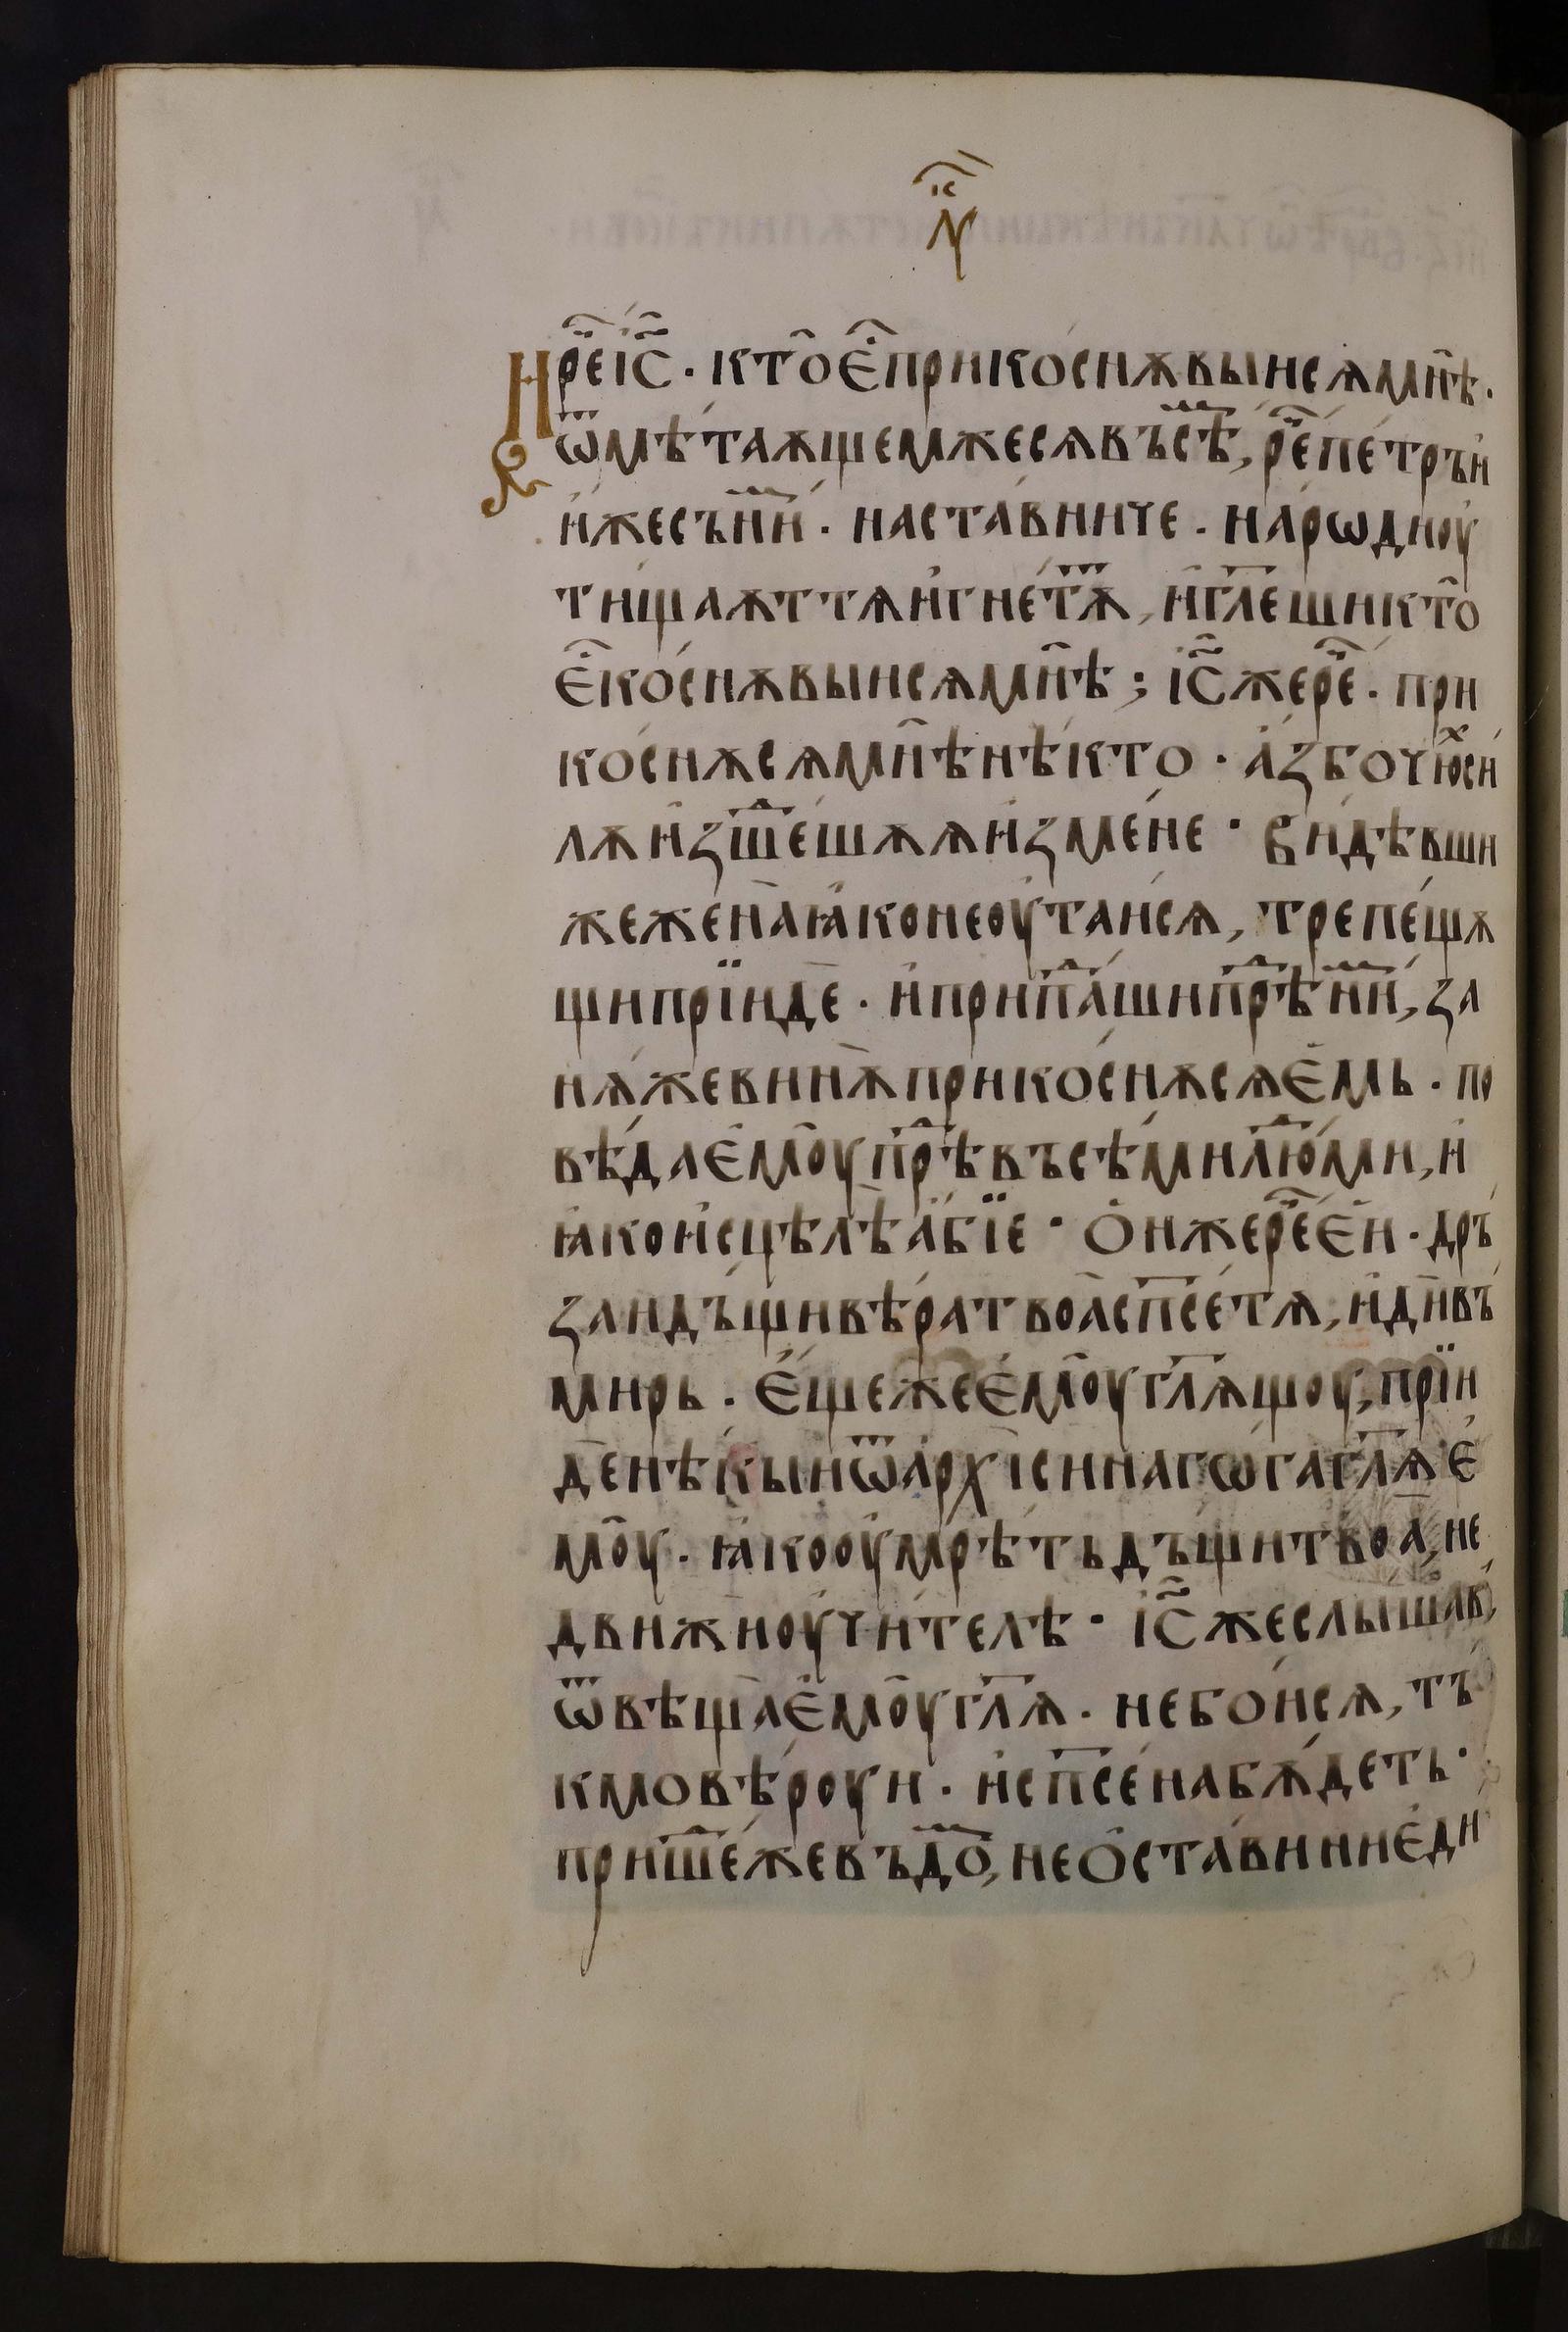 І҃С
Ꙗ҃
И ре҇ і҃с · кт̑о є҇ прикѡ́снѫвыисѧ мн̑ѣ ·
ѿмѣ́таѫщемжесѧ въсѣ̑, ре҇ пе́тръи
и҆жесъни́и · наста́вниче · нарѡ́дноу
тищаѫт тѧ и҆ гнетѫ̑, и҆ гл҃еши кт̑о
є҇ ко́снѫвыисѧ мн̑ѣ ; і҃сжере҇ · при
ко́снѫсѧ мн̑ѣ нѣ́кто · а҆́з бо чю́хси
лѫ и҆зше́шѫѧ и҆з мене · Видѣ́вши
жежена̀ ꙗ҆́ко неоу҆таи́сѧ, трепе́щѫ
щи прїи́де · и҆ припа́ши прѣ̑ ни́и, за
нѧ́же винѫ̀ прико́снѫсѧ є҆мь · по
вѣ́да є҆мо̑у прѣ̑ въсѣ́ми лю́ми, и҆
ꙗ҆́ко и҆сцѣлѣ̀ а҆́бїе · О҆́нжере҇ є҆́и · дръ
заи дъ́щи вѣ́ра твоа̀ сп҃се́тѧ, и҆ди̑ въ
мирь · Є҆́щеже є҆мо̑у гл҃ѫ́щоу, прїи
де нѣ́кыи ѿ а҆рхїсинагѡ́га гл҃ѧ є҆
мо̑у · ꙗ҆́ко оу҆мрѣ́ть дъ́щи твоа̀, не
движи оу҆чи́телѣ · і҃сже слы́шав,
ѿвѣща̀ є҆мо̑у гл҃ѧ · небо́исѧ, тъ́
кмо вѣ́роуи · и҆ сп҃се́на бѫ́деть ·
прише́же въ до̑, не ѡ҆ста́ви ни є҆ди